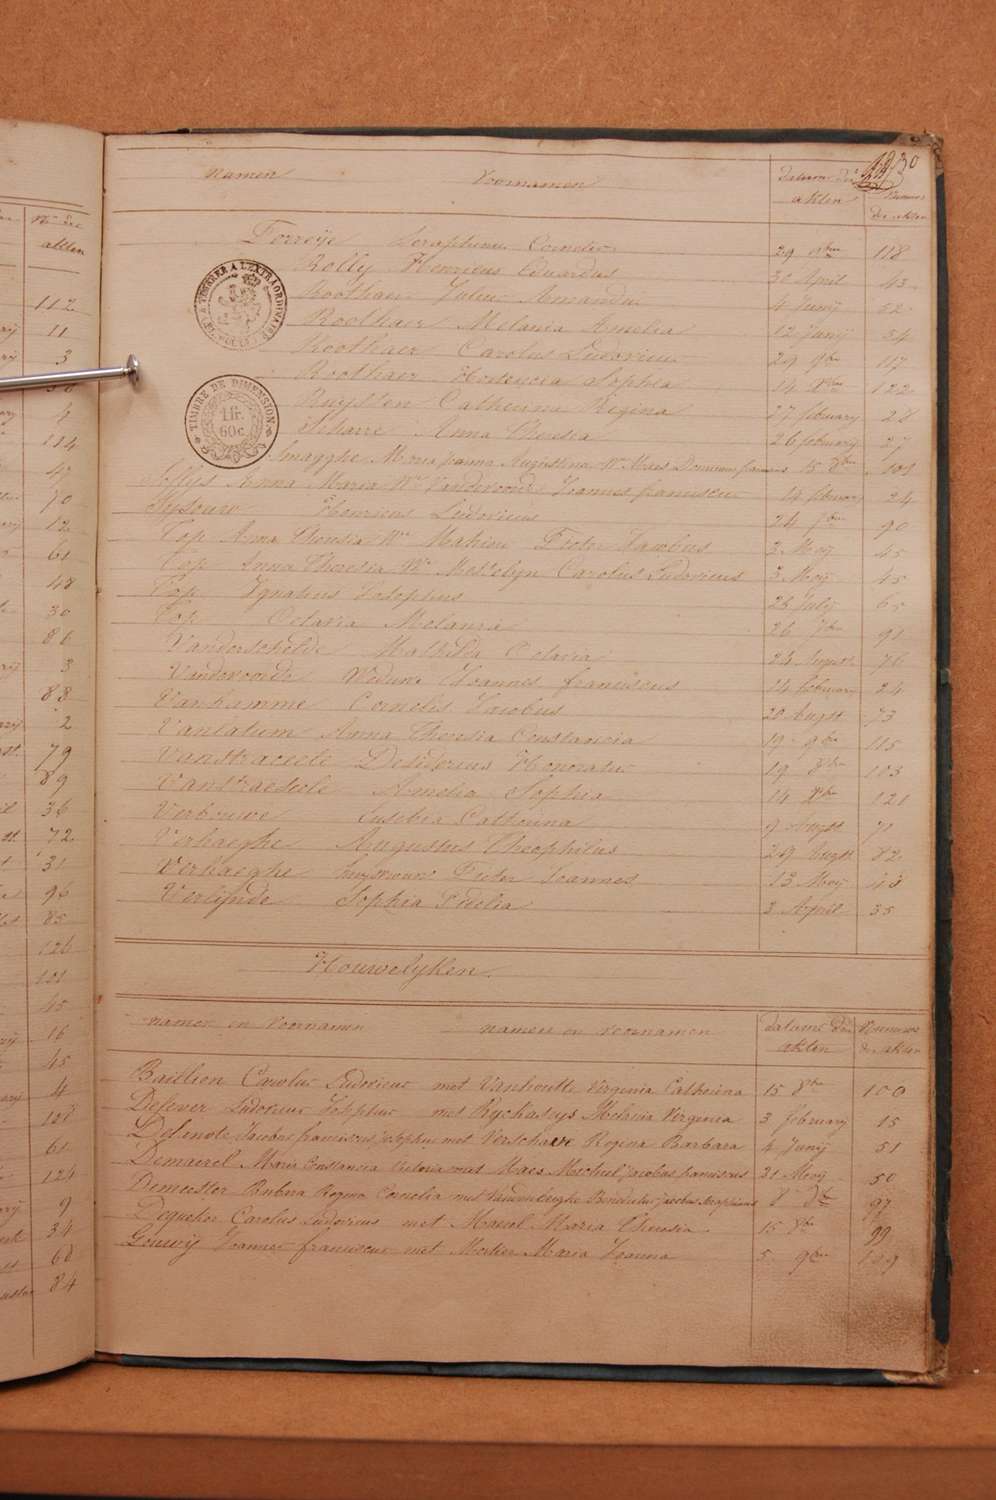 Namen Voornamen Datums der akten Nummer der akten
Torreije Seraphinus Cornelis 29 8ber 118
Rolly Henricus Eduardus 30 April 43
Roothaer Julius Amandus 4 Junij 52
Roothaer Melania Amelia 12 Junij 54
Roothaer Carolus Ludovicus 29 9ber 117
Roothaer Hortencia Sophia 14 Xber 122
Ruyssen Catherina Regina 27 february 28
Scharre Anna Theresia 26 february 27
Smagghe Maria Joanna Augustina We Maes Dominicus francus 15 8ber 101
Anna Maria We Vandevoorde Joannes franciscus 14 february 24
Henricus Ludovicus 24 7ber 90
Top Anna Theresia We Mahieu Pieter Jacobus 3 Meij 45
Top Anna Theresia We Messelyn Carolus Ludovicus 3 Meij 45
Top Ignatius Josephus 28 July 65
Top Octavia Melania 26 7ber 91
Vanderschelde Mathilda Octavia 24 Augst 76
Vandevoorde Weduwe Joannes franciscus 14 february 24
Vanhamme Cornelis Jacobus 20 Augst 73
Vanlatum Anna Theresia Constancia 19 9ber 115
Vanstraceele Desiderius Honoratus 19 8ber 103
Vanstraeseele Amelia Sophia 14 Xber 121
Verbouwe Eusebia Catherina 9 Augst 71
Verhaeghe Augustus Theophilus 29 Augst 82
Verhaeghe Pieter Joannes 13 Meij 48
Verlijnde Sophia Fidelia 3 April 35
Houwelyken.
Namen en Voornamen namen en voornamen Datums der akten Nummer der akten
Baillien Carolus Ludovicus met Vanhoutte Virginia Catherina 15 8ber 100
Defever Ludovicus Josephus met Ryckasys Melania Virginia 3 february 15
Delenote Jacobus franciscus Josephus met Verschaeve Regina Barbara 4 Junij 51
Demairel Maria Constancia Victoria met Maes Michiel Jacobus franciscus 31 Meij 50
Demeester Barbara Regina Cornelia met Benedictus Jacobus Seraphinus 8 8ber 97
Dequeker Carolus Ludovicus met Maria Theresia 15 8ber 99
Gouwij Joannes franciscus met Mortier Maria Joanna 5 9ber 109
TIMBRE DE DIMENSION
1 fr.
60 c.
Nrs der akten
112
11
3
4
114
47
10
12
61
48
30
86
3
88
2
79
89
36
72
31
96
85
126
101
45
16
45
4
61
124
9
34
68
84